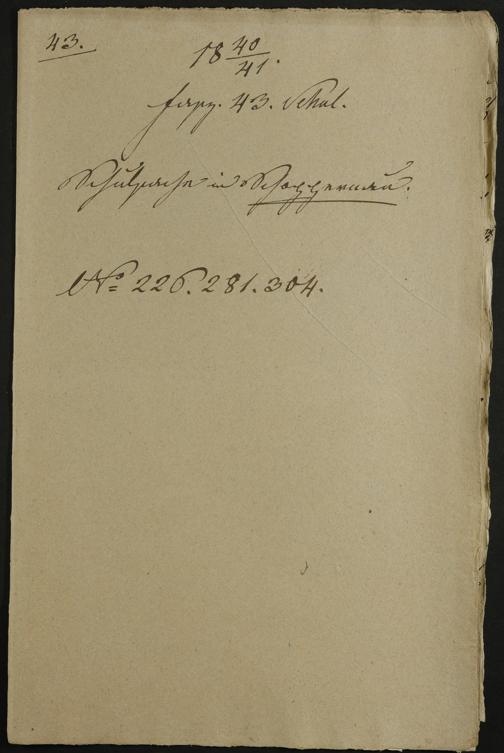 43.
18 40/41.
fasz. 43. Schul.
Schulsache in Schoppernau.
No 226. 281. 304.